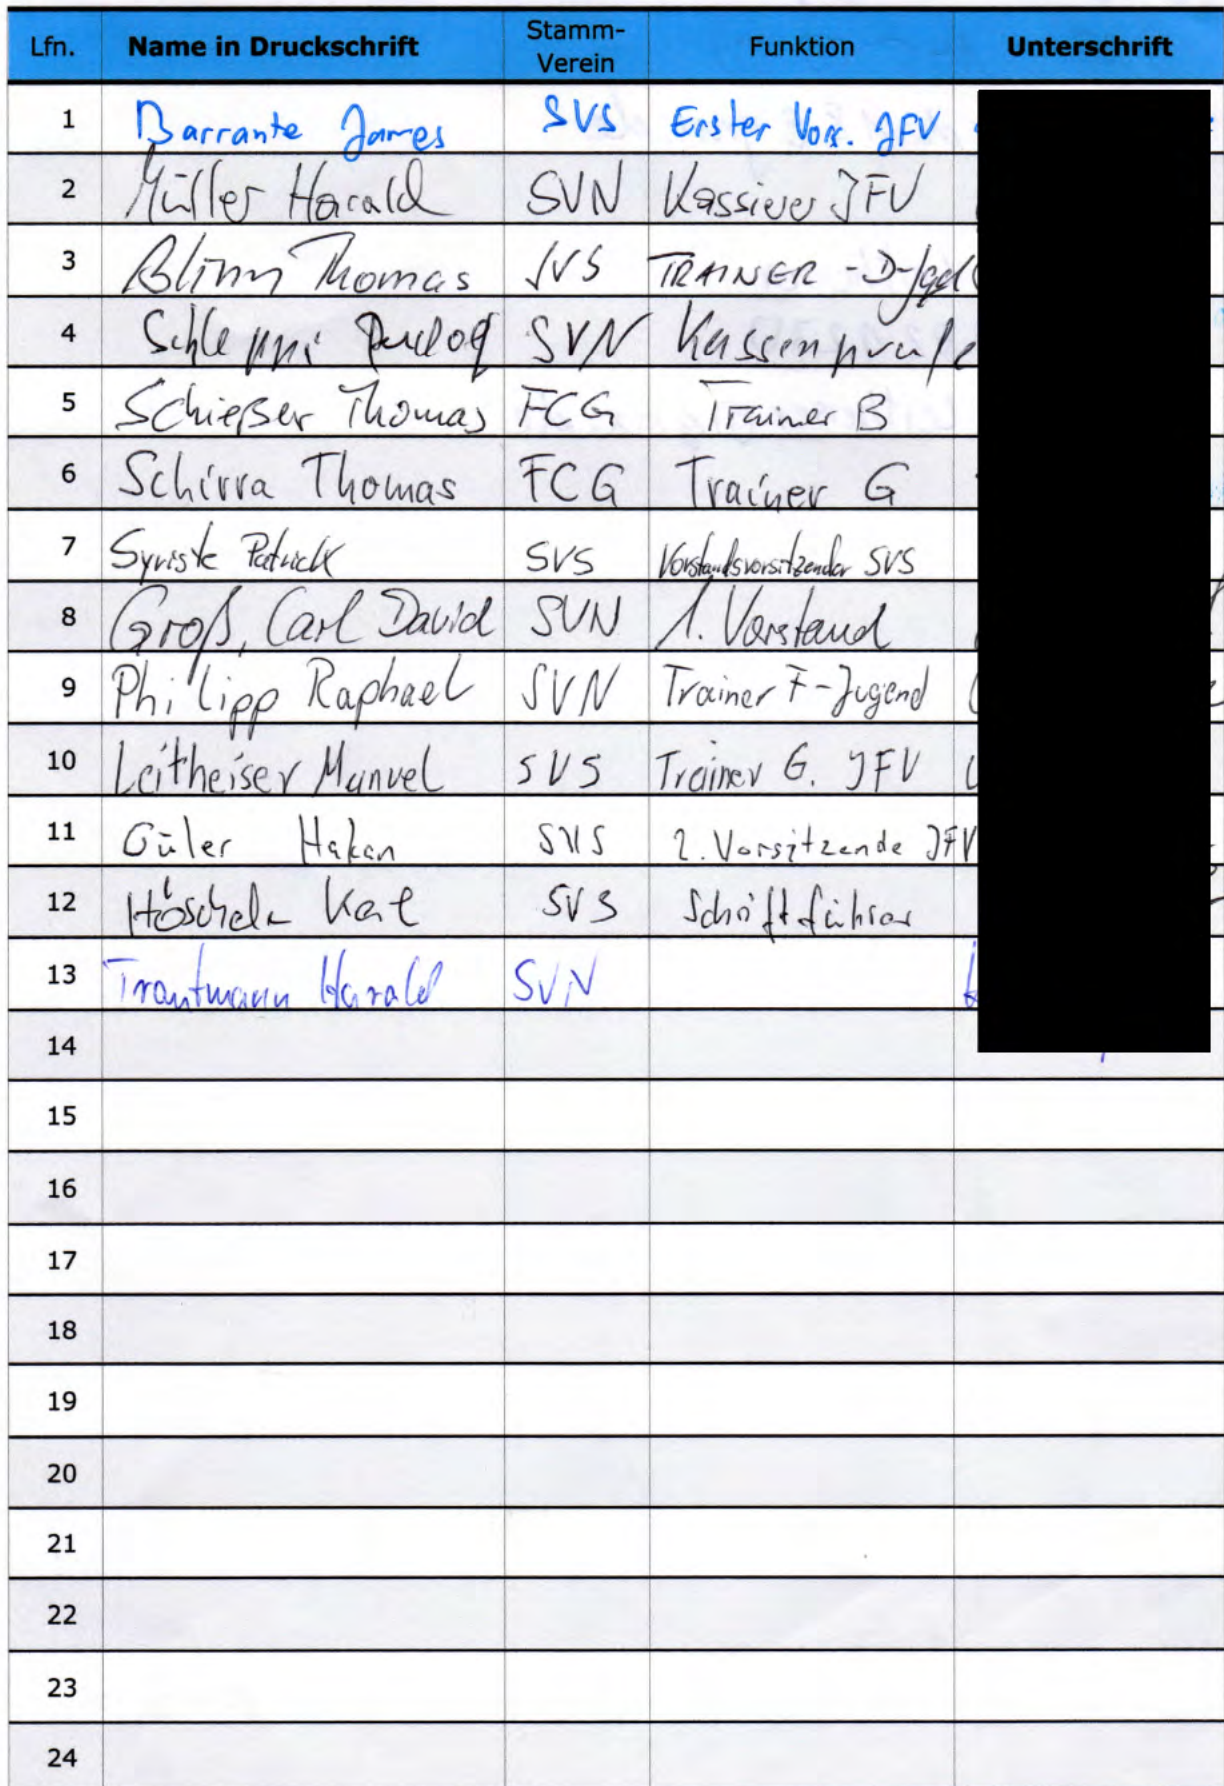 Lfn. Name in Druckschrift Stamm-Verein Funktion Unterschrift
1 Barrante James SVS Erster Vors. JFV
2 Müller Harald SVN Kassierer JFV
3 Blinn Thomas SVS TRAINER -D-Jgd
4 Schleppi Rudolf SVN Kassenprüfe
5 Schießer Thomas FCG Trainer B
6 Schirra Thomas FCG Trainer G
7 Patrick SVS Vorstandsvorsitzender SVS
8 Groß, Carl David SVN 1. Vorstand
9 Philipp Raphael SVN Trainer F-Jugend
10 Leitheiser Manuel SVS Trainer G. JFV
11 Güler Hakan SVS 2. Vorsitzende JFV
12 Karl SVS Schriftführer
13 Trautmann Harald SVN
14
15
16
17
18
19
20
21
22
23
24